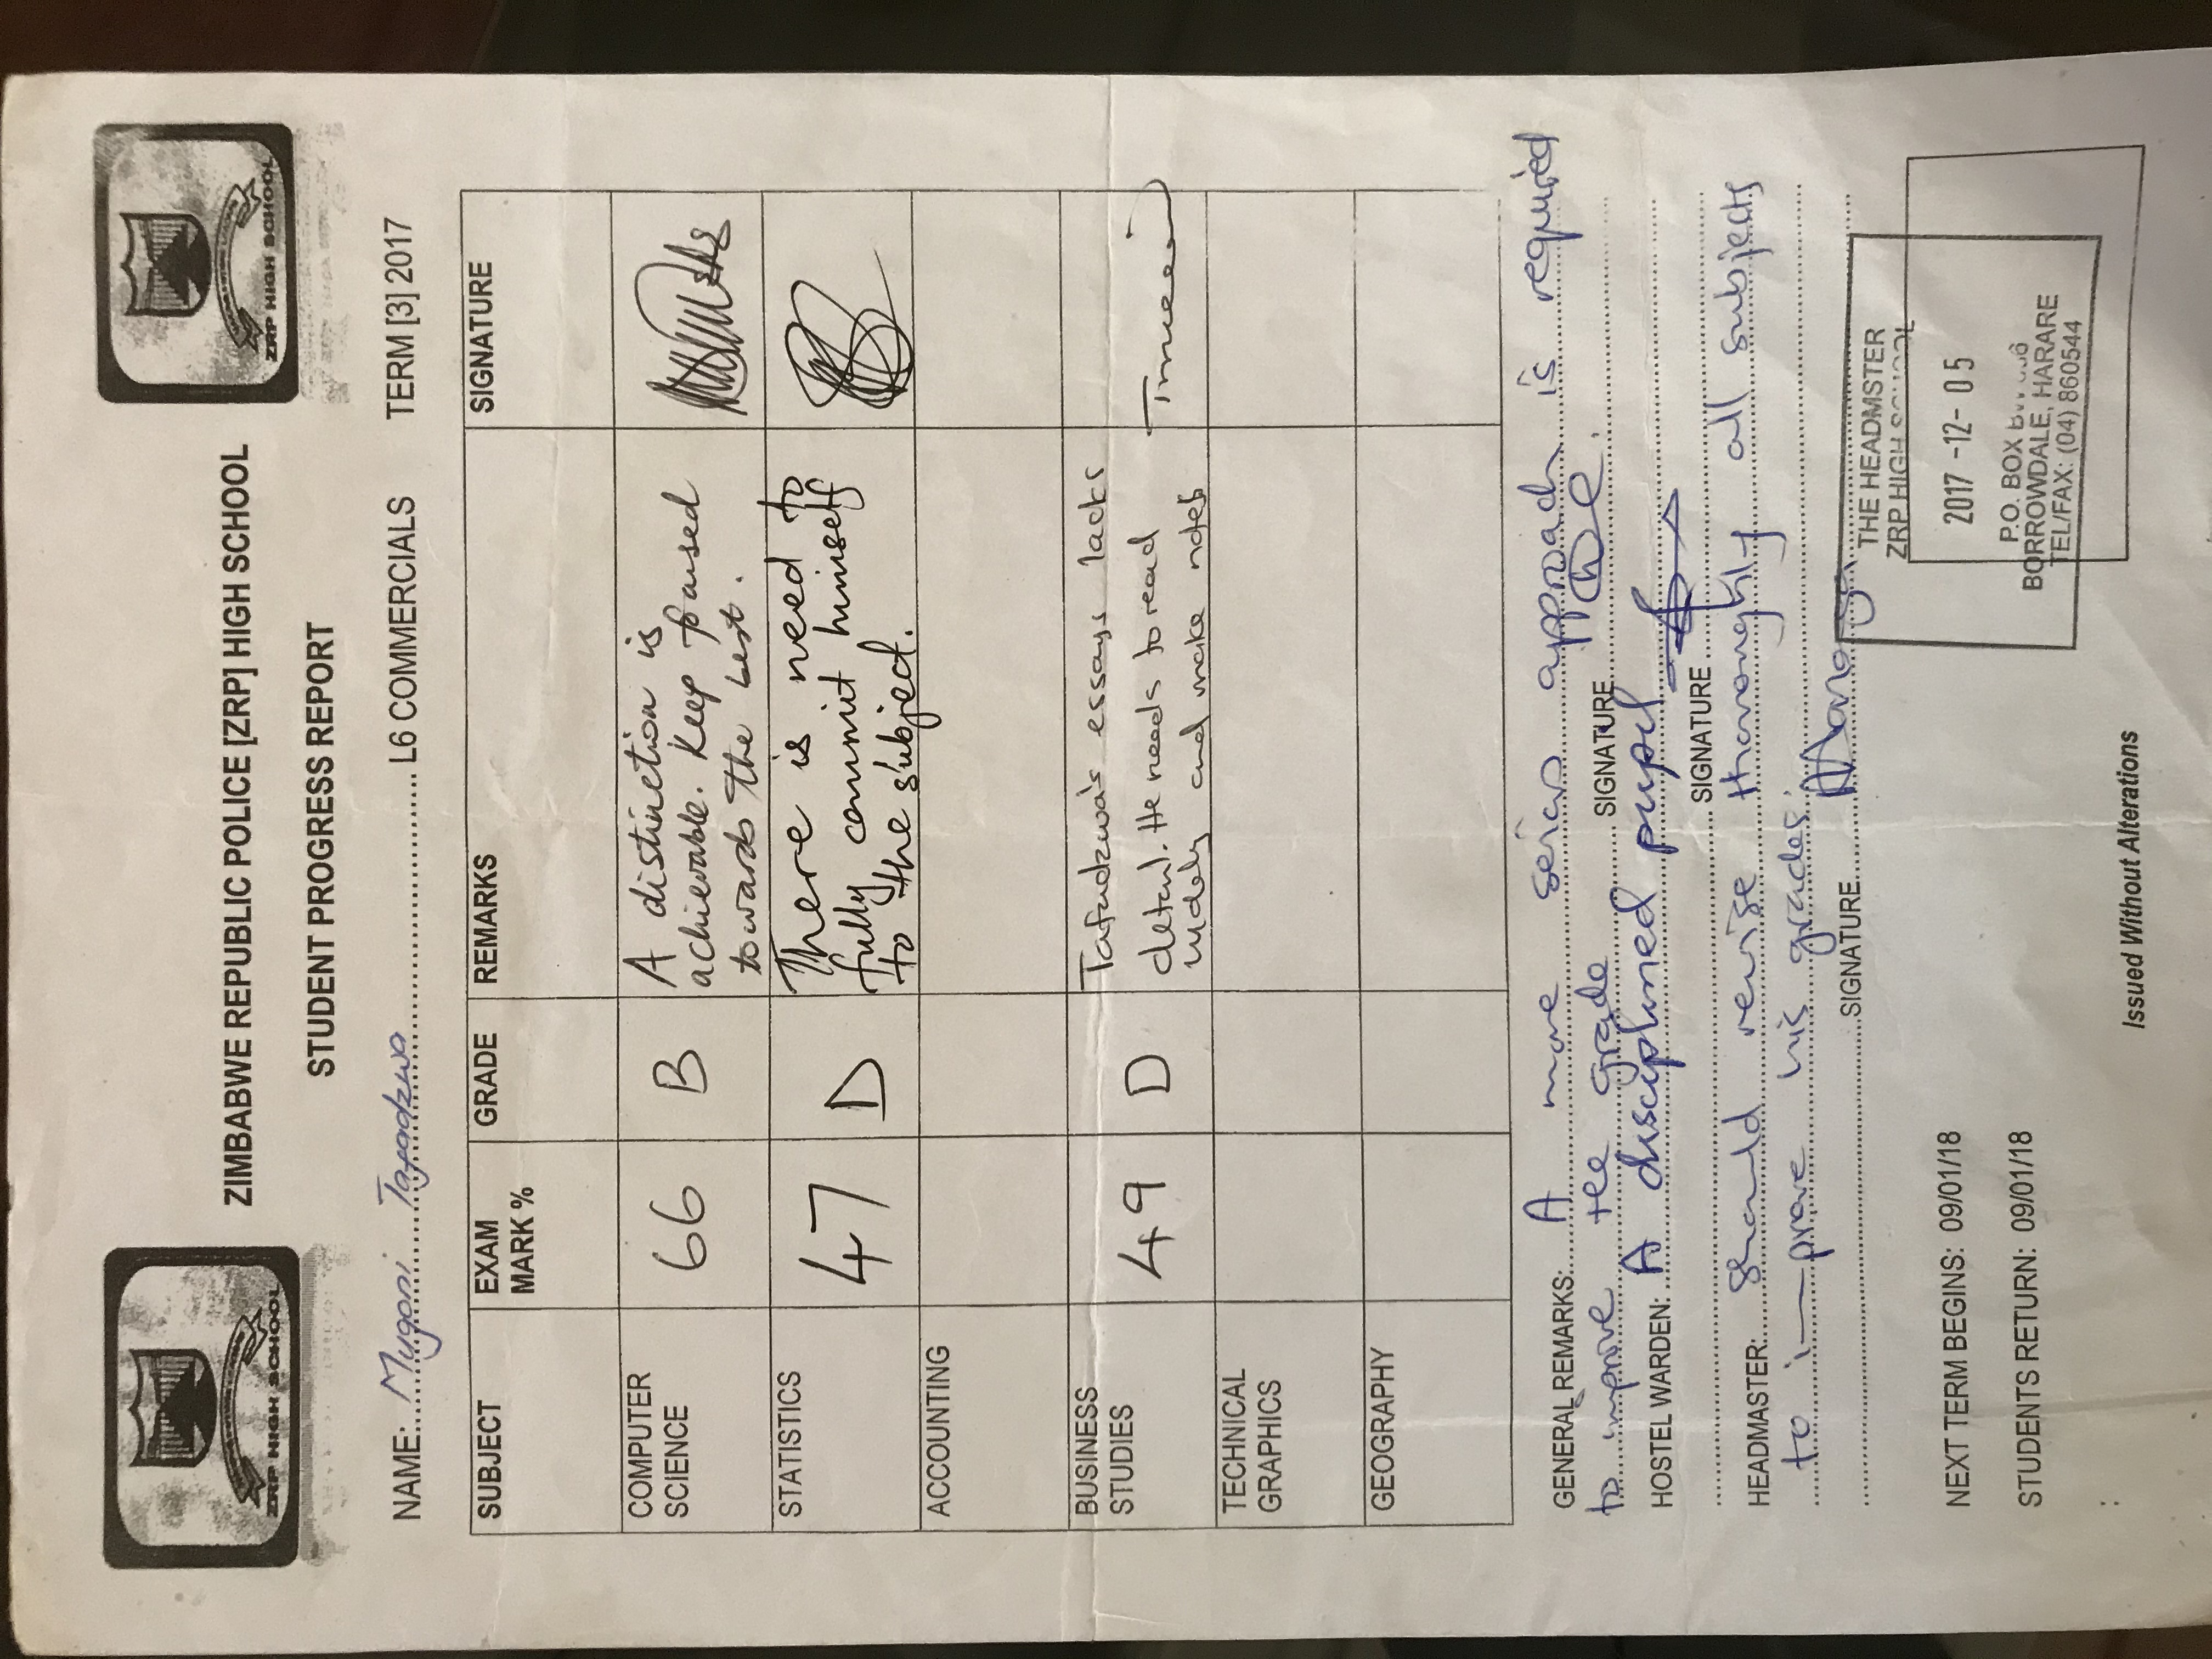 ZRP HIGH SCHOOL
ZIMBABWE REPUBLIC POLICE [ZRP] HIGH SCHOOL
ZRP HIGH SCHOOL
STUDENT PROGRESS REPORT
NAME: Mugoni Tafadzwa L6 COMMERCIALS TERM [3] 2017
SUBJECT EXAM MARK % GRADE REMARKS SIGNATURE
COMPUTER SCIENCE 66 B A distinction is
achievable. Keep focused
towards the best.
STATISTICS 47 D There is need to
fully commit himself
to the subject.
ACCOUNTING
BUSINESS STUDIES 49 D Tafadzwa's essays lack
detail. He needs to read
widely and make notes
TECHNICAL GRAPHICS
GEOGRAPHY
GENERAL REMARKS: A more serious approach is required
to improve the grade SIGNATURE
HOSTEL WARDEN: A disciplined pupil
SIGNATURE
HEADMASTER: Should revise thoroughly all subjects
to improve his grades.
SIGNATURE
NEXT TERM BEGINS: 09/01/18
STUDENTS RETURN: 09/01/18
THE HEADMSTER
ZRP HIGH SCHOOL
2017 -12- 05
P.O. BOX
BORROWDALE, HARARE
TEL/FAX: (04) 860544
Issued Without Alterations